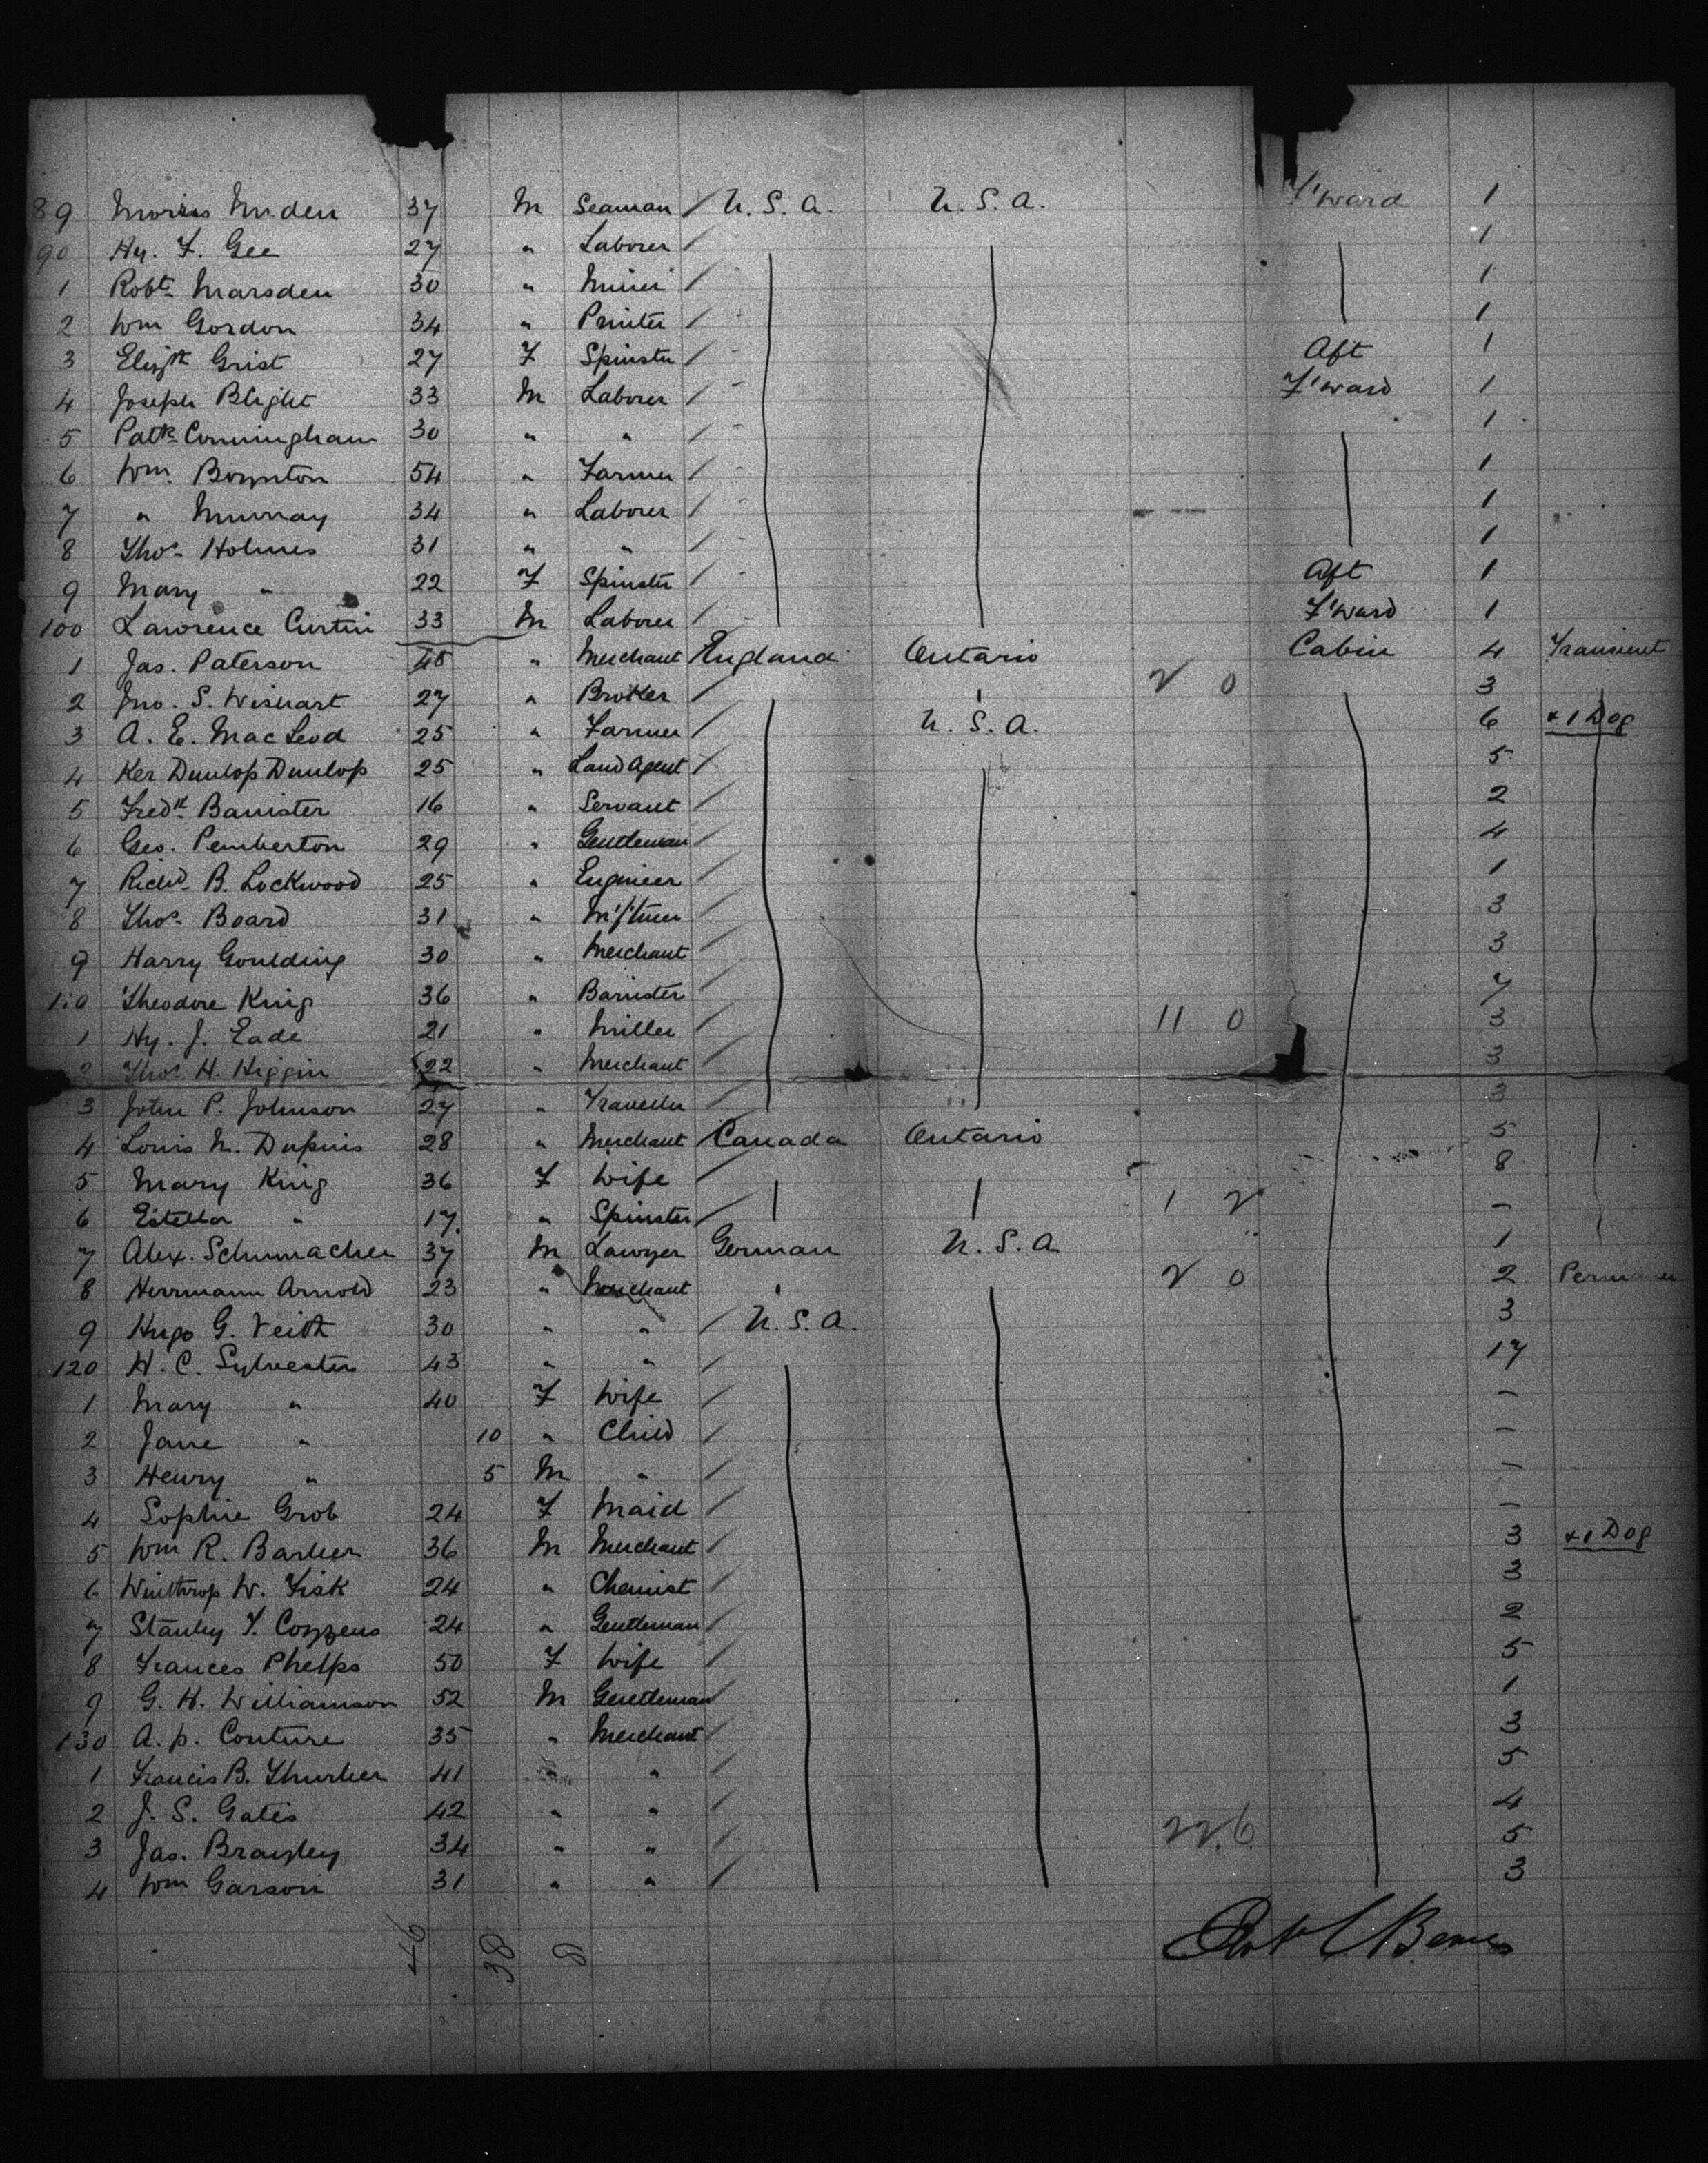 89 Morris Muden 37 M Seaman / U.S.A. U.S.A. F'ward 1
90 Hy. F. Gee 27 " Laborer / 1
1 Robt. Marsden 30 " Miner / 1
2 Wm Gordon 34 " Printer / 1
3 Elizth Grist 27 F Spinster / Aft 1
4 Joseph Blight 33 M Laborer / F'ward 1
5 Patk. Conningham 30 " " / 1
6 Wm. Boynton 54 " Farmer / 1
7 " Murray 34 " Laborer / 1
8 Thos. Holmes 31 " " / 1
9 Mary " 22 F Spinster / Aft 1
100 Lawrence Curtin 33 M Laborer / F'ward 1
1 Jas. Paterson 48 " Merchant / England Ontario Cabin 4 Transient
2 Jno. S. Wishart 27 " Broker / " 2 0 3
3 A. E. MacLeod 25 " Farmer / U.S.A. 6 + 1 Dog
4 Ker Dunlop Dunlop 25 " Land Agent / 5
5 Fredk. Banister 16 " Servant / 2
6 Geo. Pemberton 29 " Gentleman / 4
7 Richd. B. Lockwood 25 " Engineer / 1
8 Thos. Board 31 " M'f'turer / 3
9 Harry Goulding 30 " Merchant / 3
110 Theodore King 36 " Barrister / 7
1 Hy. J. Eade 21 " Miller / 11 0 3
2 Thos. H. Higgin 22 " Merchant / 3
3 John P. Johnson 27 " Traveller / 3
4 Louis N. Dupuis 28 " Merchant / Canada Ontario 5
5 Mary King 36 F Wife / 8
6 Estella " 17 " Spinster / 1 2 –
7 Alex. Schumacher 37 M Lawyer German U.S.A 1
8 Herrmann Arnold 23 " Merchant " 2 0 2
9 Hugo G. Veith 30 " " / U.S.A. 3
120 H. C. Sylvester 43 " " / 17
1 Mary " 40 F Wife / –
2 Jane " 10 " Child / –
3 Henry " 5 M " / –
4 Sophie Grob 24 F Maid / –
5 Wm R. Barber 36 M Merchant / 3 + 1 Dog
6 Winthrop W. Fisk 24 " Chemist / 3
7 Stanley F. Cozzens 24 " Gentleman / 2
8 Frances Phelps 50 F Wife / 5
9 G. H. Williamson 52 M Gentleman / 1
130 A. p. Couture 35 " Merchant / 3
1 Francis B. Thurber 41 " " / 5
2 J. S. Gates 42 " " / 4
3 Jas. Brayley 34 " " / 22 6 5
4 Wm Garson 31 " " / 3
46 38 8